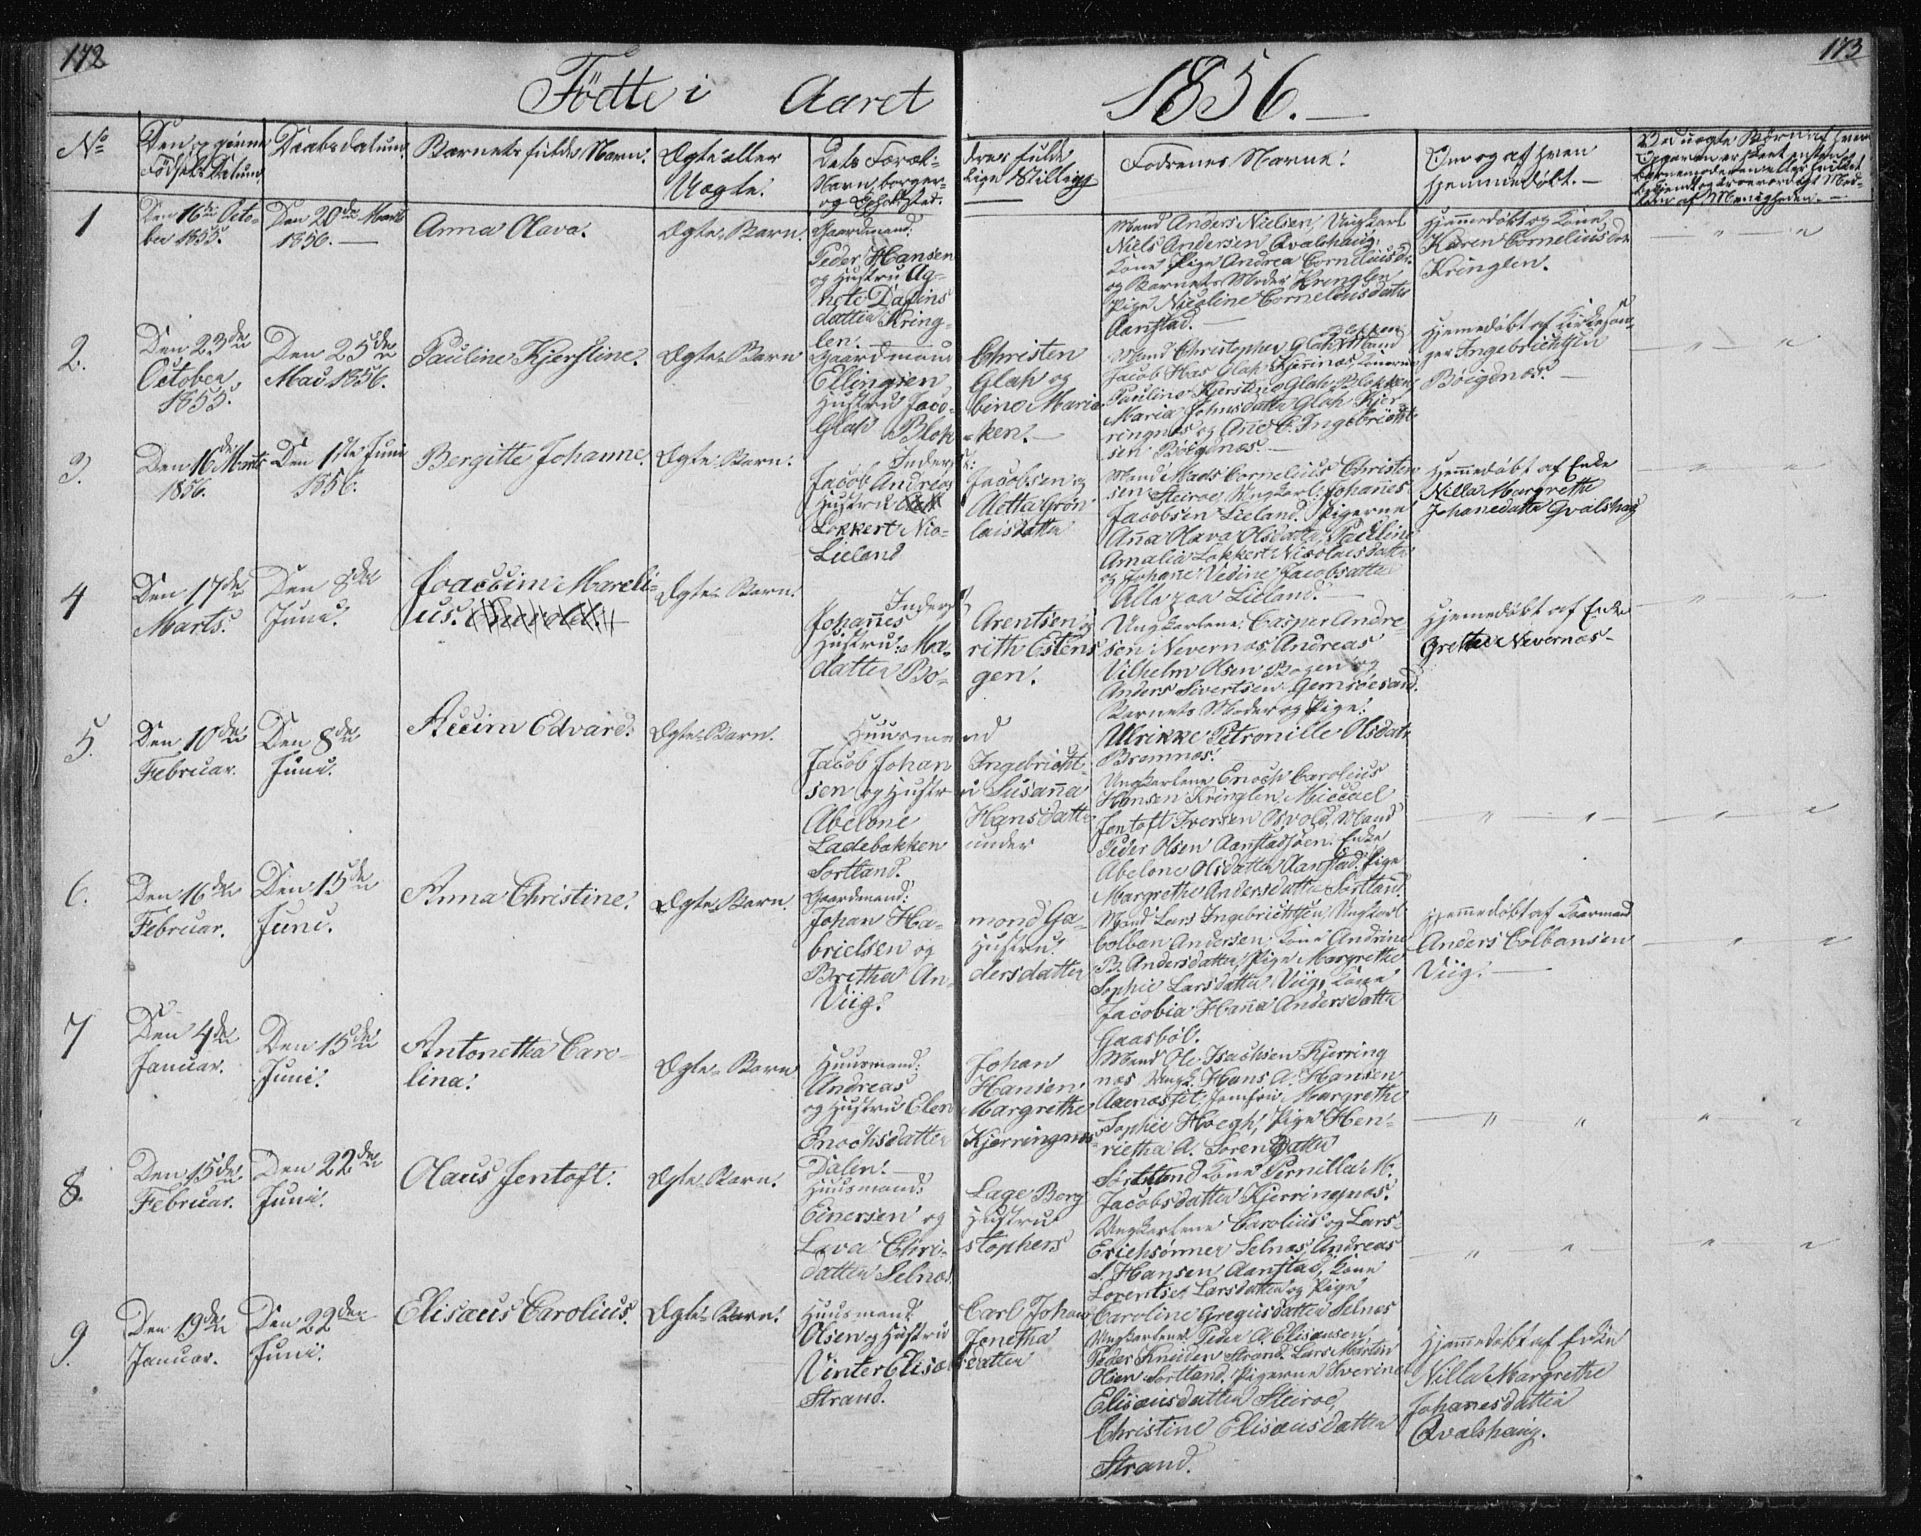 172
173
Födte i Aaret 1856.
No
Den opgivne Födsels Datum.
Daabsdatum.
Barnets fulde Navn.
Ægte eller Uægte.
Dets Foræl-
dres fulde
Navn, borger-
lige Stilling
og Opholdsted.
Fadrenes Navne.
Om og af hvem
hjemmedøbt.
1
Den 16de Octo-
ber 1855.
Den 20de Marts
1856.
Anna Olava.
Ægte Barn.
Gaardmand:
Peder Hansen
og Hustru Ag-
hete Dafins
datter Kring-
len.
Mand Anders Nielsen, Ungkarl
Niels Andersen Qvalshaug,
Kone Pige Andrea Corneliusdr.
og Barnets Moder Kringlen,
Pige Nicoline Corneliusdatter
Aanstad.
Hjemmedøbt og Kone
Karen Corneliusdtr
Kringlen.
2.
Den 23de
October
1855.
Den 25de
Mai 1856.
Pauline Kjerstine.
Ægte Barn
Gaardmand Christen
Ellingsen Glah og
Hustru Jaco-bine Marie
Glah Blok-ken.
Mand Christopher Glah Blokken, Mand
Jacob Has Glah Kjerinnæs, Konerne
Pauline Kjerstine Glah Blokken,
Maria Johnsdatter Glah Kjer-
ringnæs og Ane C. Ingebricht-
sen Böigenæs.
Hjemedöbt af Kirkesan-
ger Ingebrichtsen
Böigenæs.
3.
Den 16de Marts
1856.
Den 1ste Juni
1856.
Bergitte Johanne.
Ægte Barn.
Inderst:
Jacob Andreas Jacobsen og
Hustru Aletta Grön
Lokkert Nico-laisdatter
Lieland
Mand Mads Cornelius Christen-
sen Steiroe, Ungkarl Johannes
Jacobsen Lieland. Pigerne
Anna Olava Olsdatter, Pauline
Amalia Lokkert Nicolaisdatter
og Johane Vedine Jacobsdatter
Alle paa Lieland.
Hjemmedöbt af Enke
Nilla Margrethe
Johanesdatter Qvalshaug
4
Den 17de
Marts.
Den 8de
Juni.
Joachim Mareli-
us.
Ægte Barn.
Inderst,
Johannes Arentsen og
Hustru: Ma-rith Estens
datter Bo-gen.
Ungkarlene: Casper Andre-
sen Nevernæs, Andreas
Vilhelm Olsen Bogen og
Anders Sivertsen Gemsöesand.
Barnets Moder og Pige:
Ulrikke Petronille Olsdatr
Bremnæs.
Hjemedöbt af Enke
Grethe Nevernæs
5.
Den 10de
Februar.
Den 8de
Juni.
Accim Edvard.
Ægte Barn.
Huusmand
Jacob Johan Ingebricht-
sen og Hustru Susanna
Abelone Hansdatter
Ladebakken under
Sortland.
Ungkarlene Enoch Carolius
Hansen Kringlen, Miccael
Jentoft Iversen Osvold, Mand
Peder Olsen Aanstadsjøen. Enke
Abelone Olsdatter Aanstad. Pige
Margrethe Andersdatter Sortland.
6.
Den 16de
Februar.
Den 15de
Juni.
Anna Christine.
Ægte Barn.
Gaardmand:
Johan Ha-mond Ga-
brielsen og Hustru:
Bretha An-dersdatter
Viig.
Mand Lars Ingebrichtsen, Ungkarl
Colban Andersen, Kone Andrine
B. Andersdatter, Pige Margrethe
Sophie Larsdatter Viig, Kone
Jacobia Hanna Andersdatter
Gaasböl.
Hjemmedöbt af Gaarmand
Anders Colbansen
Viig.
7
Den 4de
Januar.
Den 15de
Juni.
Antonetha Caro-
lina.
Ægte Barn
Huusmand: Johan
Andreas Hansen
og Hustru Elen Margrethe
Enochsdatter Kjerringnæs
Dalen.
Mand Ole Isachsen Kjerring
næs Ungk. Hans A. Hansen
Aaenæsset, Jomfru Margrethe
Sophie Hoegh, Pige Hen-
rietha A. Sorensdatter
Sortland Kone Pernilla M.
Jacobsdatter Kjerringnæs.
8.
Den 15de
Februar.
Den 22de
Juni.
Olaus Jentoft.
Ægte Barn.
Huusmand: Lage Berg
Einersen og Hustru
Lava Chri-stophers
datter Selnæs.
Ungkarlene Carolius og Lars
Erichsönner Selnæs, Andreas
S. Hansen Aanstad, Kone
Lorentse Larsdatter og Pige
Caroline Gregusdatter Selnæs
9.
Den 19de
Januar.
Den 22de
Juni.
Elisæus Carolius.
Ægte Barn.
Huusmand Carl Johan
Olsen og Hustru Jonetha
Vinter Elisæ-datter
Strand.
Ungkarlene Peder A. Elisæusen,
Peder Kneiden Strand. Lars Martin
Olsen Sortland. Pigerne Iverine
Elisæusdatter Steiroe,
Christine Elisæusdatter
Strand.
Hjemmedöbt af Enke
Nilla Margrethe
Johanesdatter
Qvalshaug.